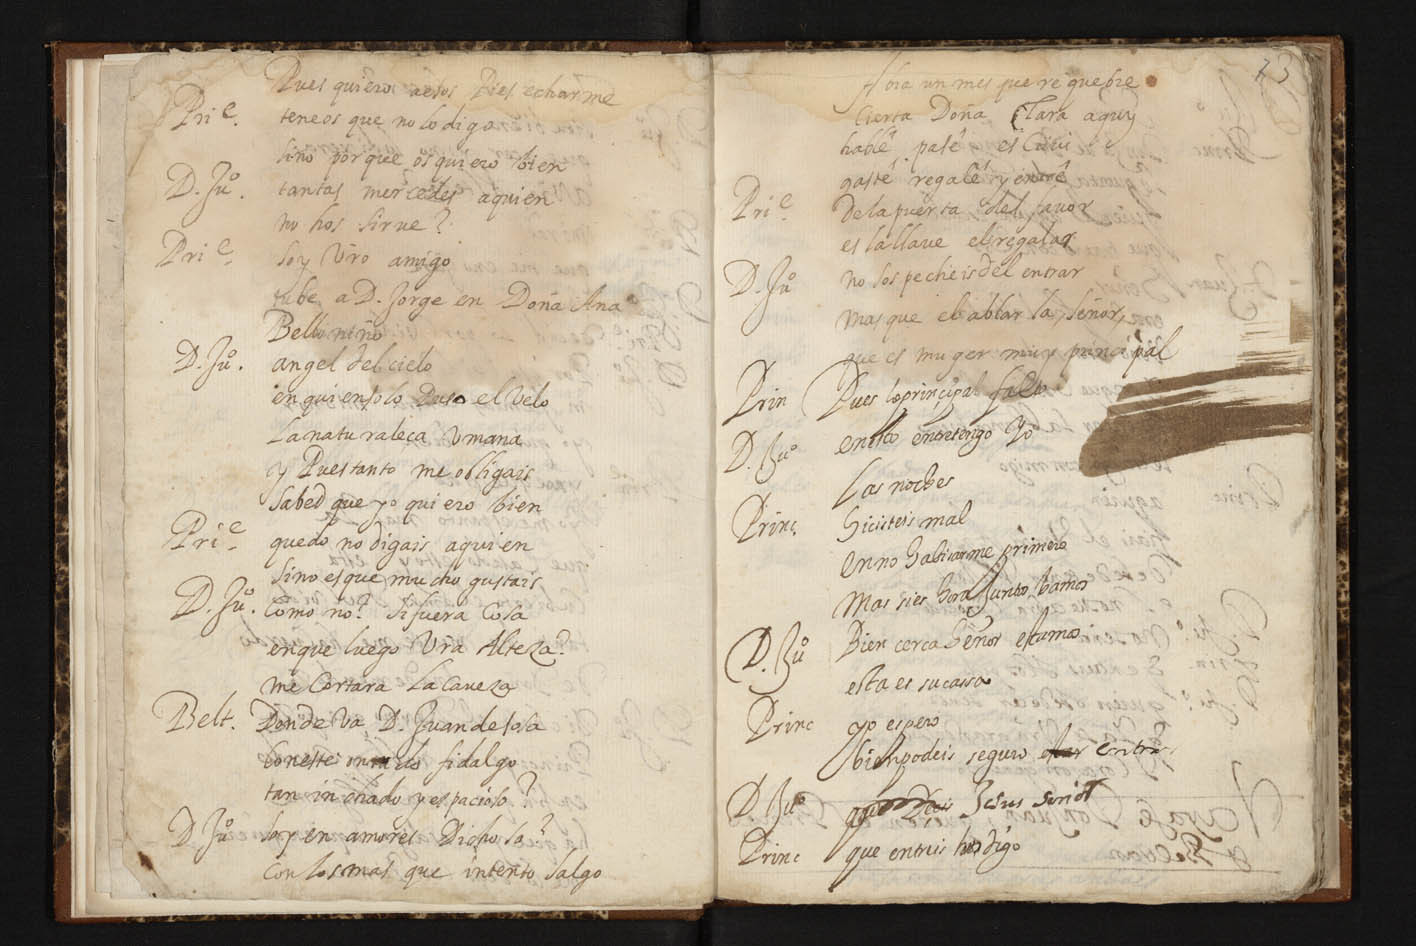 Pues quiero a esos Pies echarme
Pri e. teneos que no lo digo
sino porque os quiero bien
D. Juo. tantas mercedes a quien
no hos sirue?
Pri e. soy Vro amigo
tube a D. Jorge en Doña Ana
Bello niño
D. Juo. angel del cielo
en quien solo Puso el Velo
La naturaleça Vmana
y Pues tanto me obligais
sabed que yo quiero bien
Pri e. quedo no digais a quien
sino es que mucho gustais
D. Juo. Como no? si fuera Cosa
en que luego Vra Alteza?
me Cortara La Caueza
Belt. Donde Va D. Juan de sosa
Con este fidalgo
tan inchado y espacioso?
D Juo soy en amores Dichoso?
con los mas que intento salgo
73
Abra un mes que requebre
Cierta Doña Clara aquy
hable pase escriui
gaste regale y entre
Pri e. De la puerta del fauor
es la llaue el regalar
D. Juo no sospecheis del entrar
mas que el ablarla, señor,
que es muger muy principal
Prin Pues lo principal falto
D. Juo. en esso entretengo yo
Las noches
Princ. hicisteis mal
en no habisarme primero
mas si es hora Junto bamos
D. Juo Bien cerca Señor estamos
esta es su cassa
Princ yo espero
bien podeis seguro entrar
D. Juo. que Jesus señor
Princ que entreis hos digo